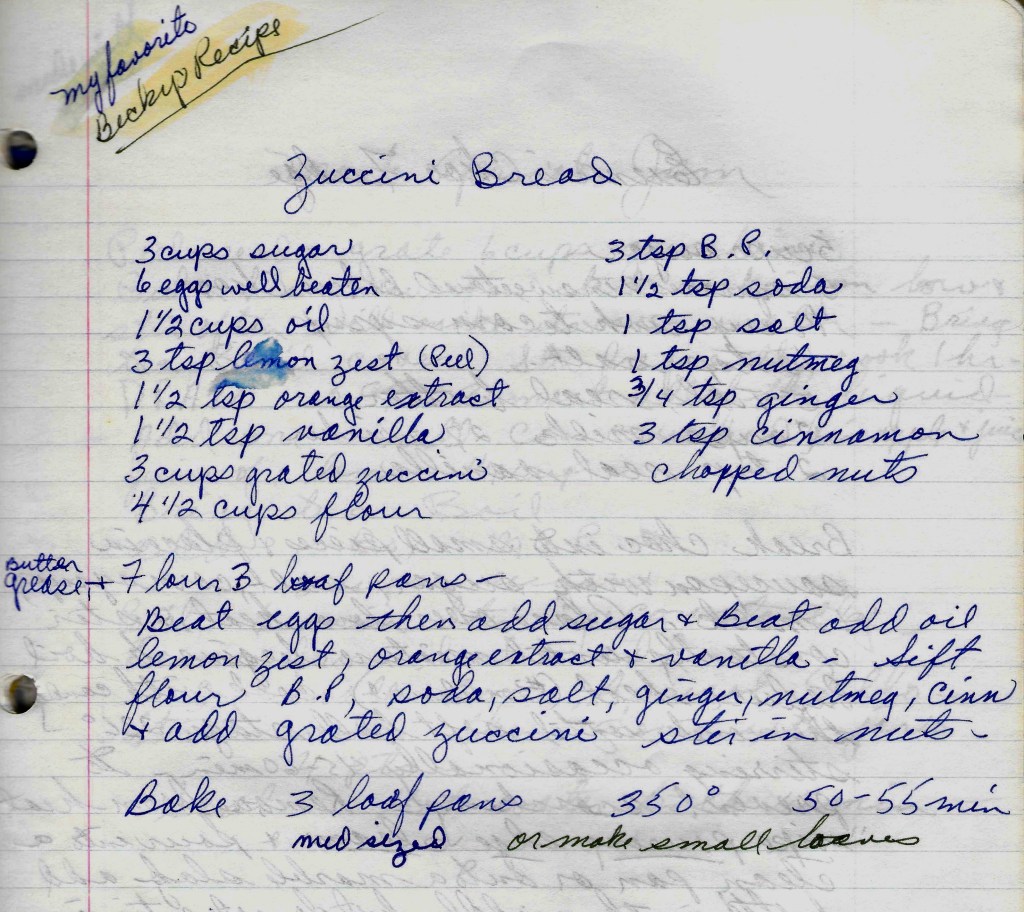 my favorite
Becky's Recipe
Zuccini Bread
3 cups sugar
6 eggs well beaten
1 1/2 cups oil
3 tsp lemon zest (Peel)
1 1/2 tsp orange extract
1 1/2 tsp vanilla
3 cups grated zuccini
4 1/2 cups flour
3 tsp B.P.
1 1/2 tsp soda
1 tsp salt
1 tsp nutmeg
3/4 tsp ginger
3 tsp cinnamon
chopped nuts
Butter
grease, + Flour 3 loaf pans -
Beat eggs then add sugar + Beat add oil
lemon zest, orange extract + vanilla - Sift
flour B.P, soda, salt, ginger, nutmeg, Cinn
+ add grated zuccini stir in nuts -
Bake 3 loaf pans 350° 50-55 min
med sized or make small loaves